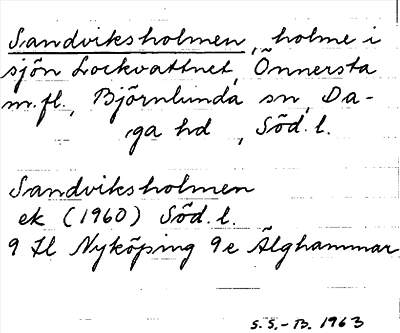 Sandviksholmen, holme i
sjön Lockvattnet, Önnersta
m.fl., Björnlunda sn, Da-
ga hd, Söd. l.
Sandviksholmen
ek (1960) Söd. l.
9 H Nyköping 9e Älghammar
S.S.-B. 1963